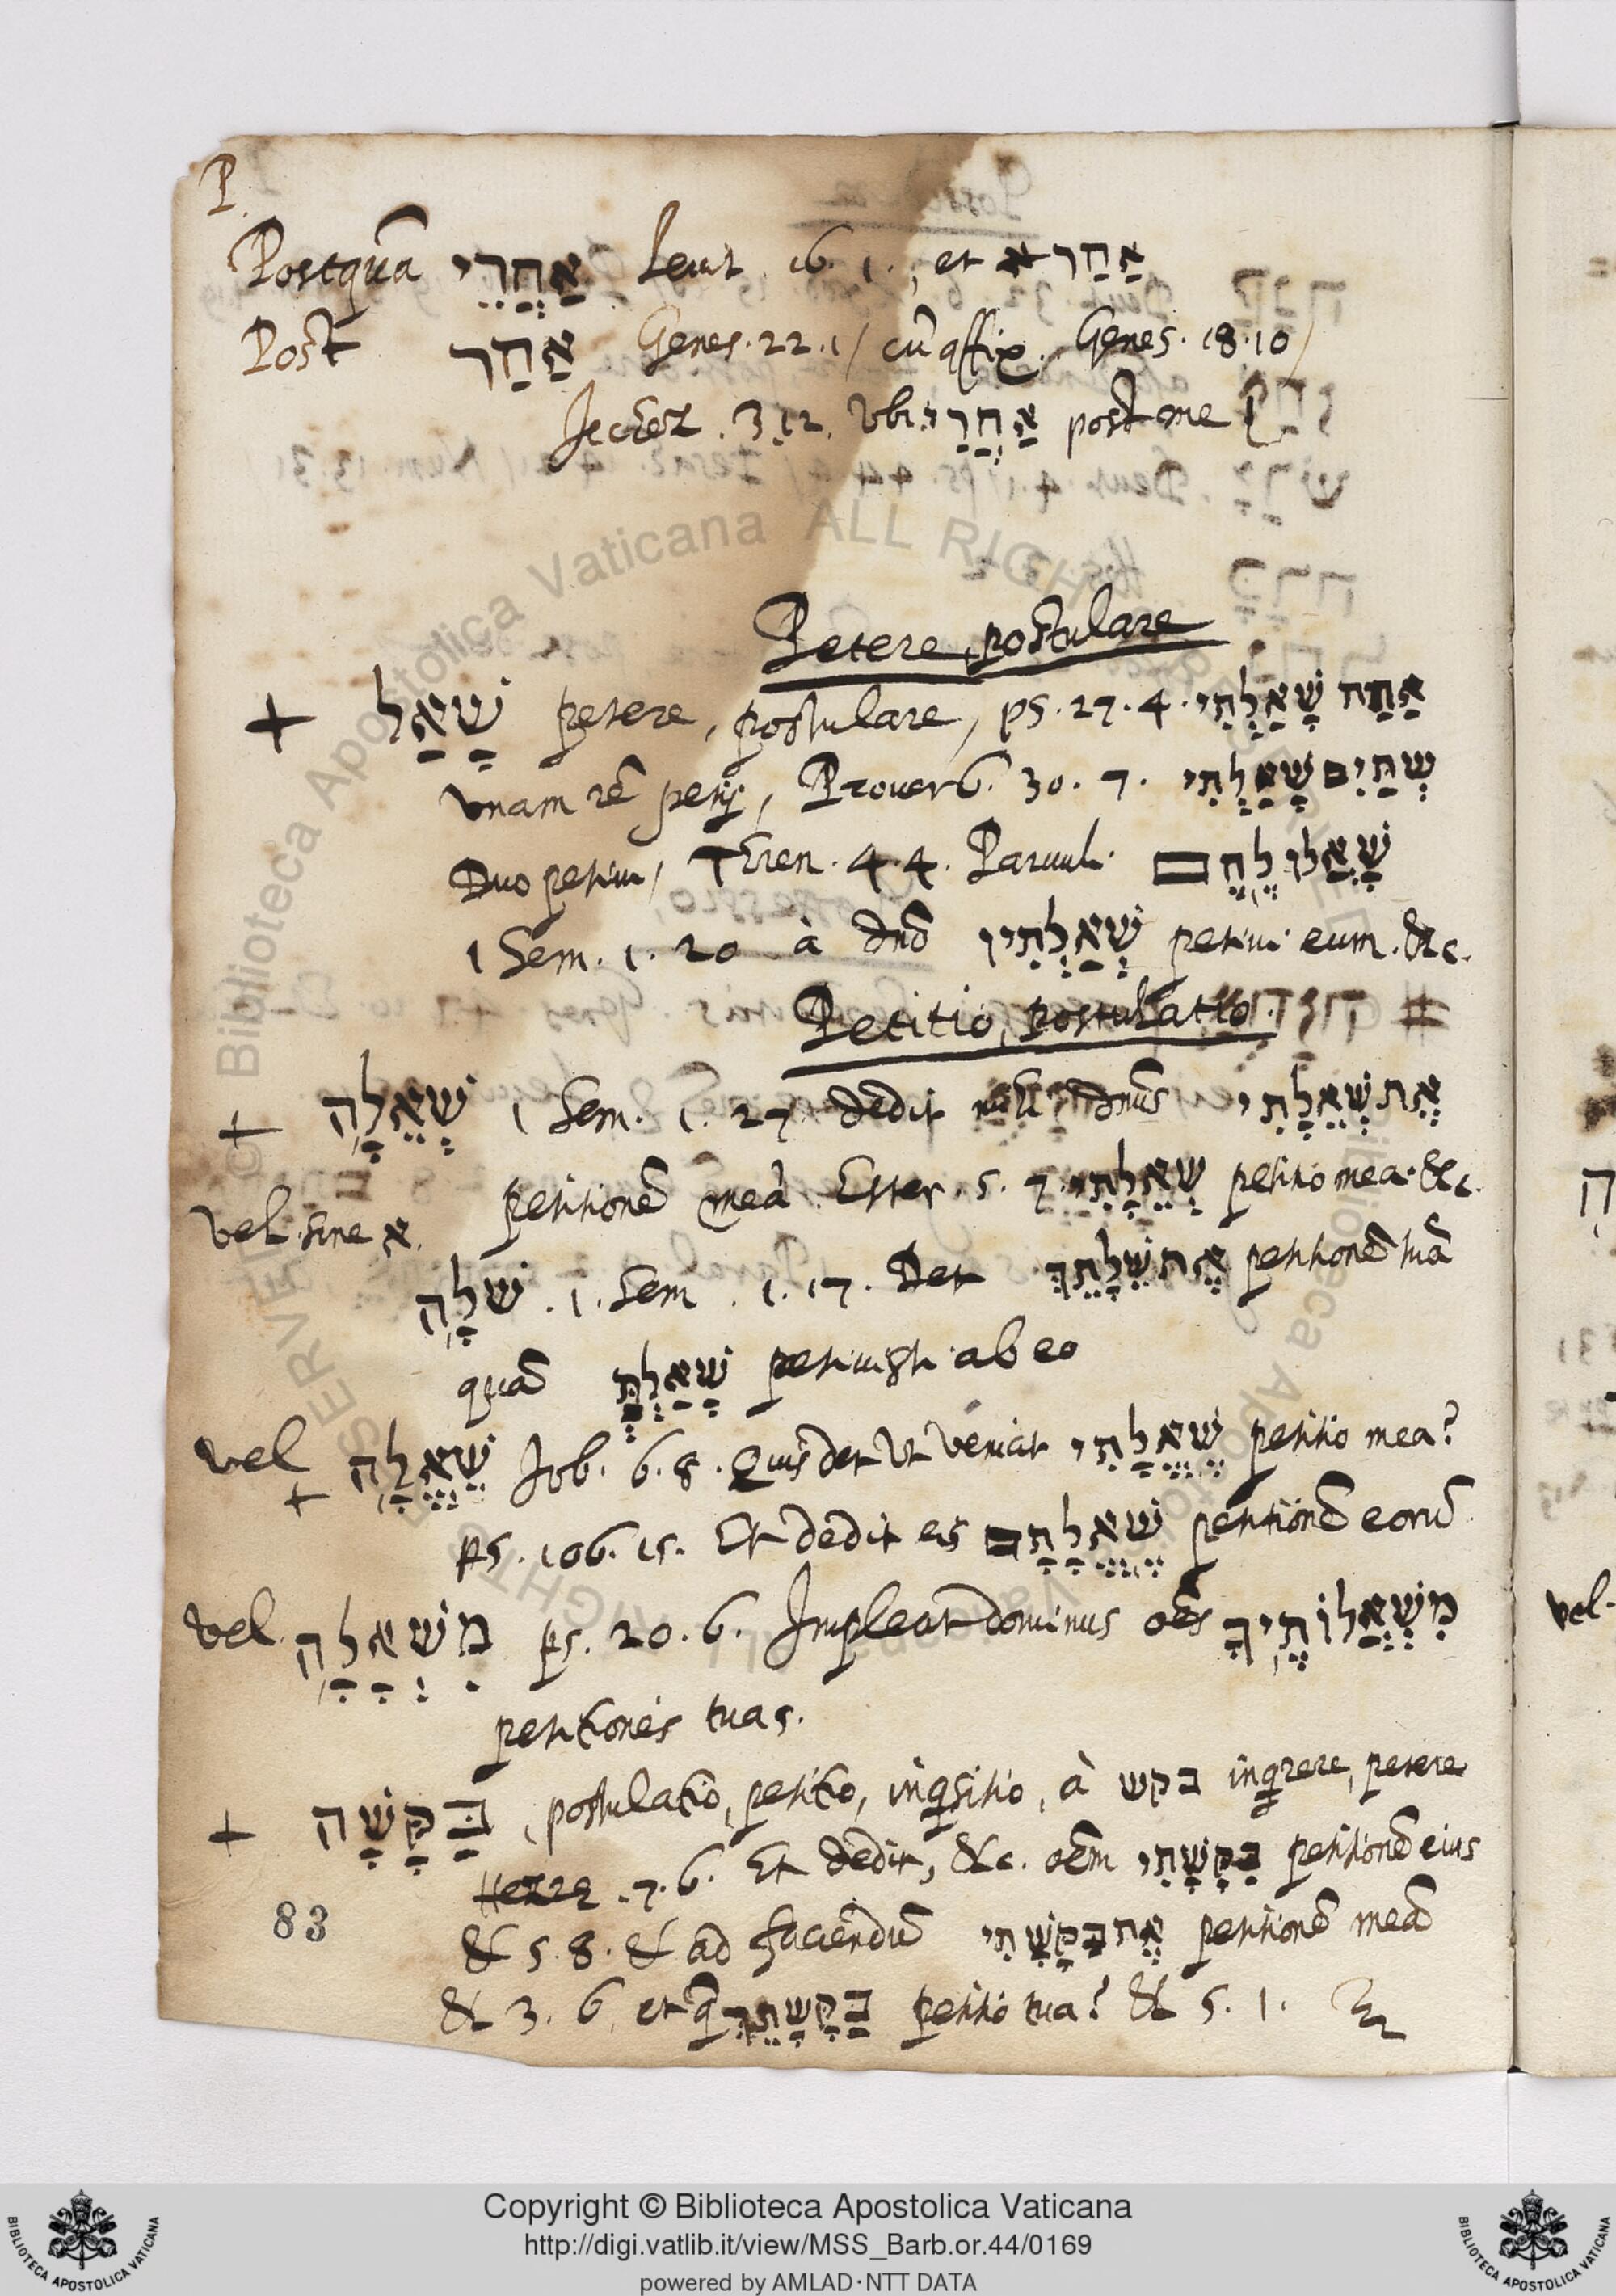 P.
Postquā אַחֲרֵי Leuit. 16. 1., et אַחַר
Post אַחַר Genes. 22. 1/ cū affix. Genes. 18. 10/
3. 12. vbi אַחֲרַי post me
Petere, postulare
+ שָׁאַל petere, postulare, ps. 27. 4. אַחַת שָׁאַלְתִּי
vnam rē petij, Prouerb. 30. 7. שְׁתַּיִם שָׁאַלְתִּי
Duo petiui, Tren. 4. 4. Paruul. שָׁאֲלוּ לֶחֶם
1 Sem. 1. 20 à dnō שְׁאִלְתִּיו petiui eum. &c.
Petitio, postulatio.
+ שְׁאֵלָה 1 Sem. 1. 27. dedit mihi dnūs אֶת שְׁאֵלָתִי
petitionē meā. Ester. 5. 7. שְׁאֵלָתִי petitio mea. &c.
vel sine א.
שלָה . 1. Sem . 1. 17. Det אֶת שֵׁלָתֵךְ petitionē tuā
quā שָׁאַלְתָּ petiuisti ab eo
vel + שֶׁאֱלָה Job. 6. 8. Quis det Vt veniat שֶׁאֱלָתִי petitio mea?
ps. 106. 15. Et dedit eis שֶׁאֱלָתָם petitionē eorū
vel. מִשְׁאָלָה ps. 20. 6. Impleat dominus oēs מִשְׁאֲלוֹתֶיךָ
petitiones tuas.
+ בַּקָּשָׁה, postulatio, petitio, inqsitio, à בקש inqrere, petere
7. 6. Et dedit, &c. oēm בַּקָּשָׁתִי petitionē eius
83
& 5. 8. & ad faciendū אֶת בַּקָּשָׁתִי petitionē meā
& 3. 6, et q בַּקָּשָׁתֵךְ petitio tua? & 5. 1.
vel.
© Biblioteca Apostolica Vaticana ALL RIGHTS RESERVED
Copyright © Biblioteca Apostolica Vaticana
http://digi.vatlib.it/view/MSS_Barb.or.44/0169
powered by AMLAD·NTT DATA
BIBLIOTECA APOSTOLICA VATICANA
BIBLIOTECA APOSTOLICA VATICANA